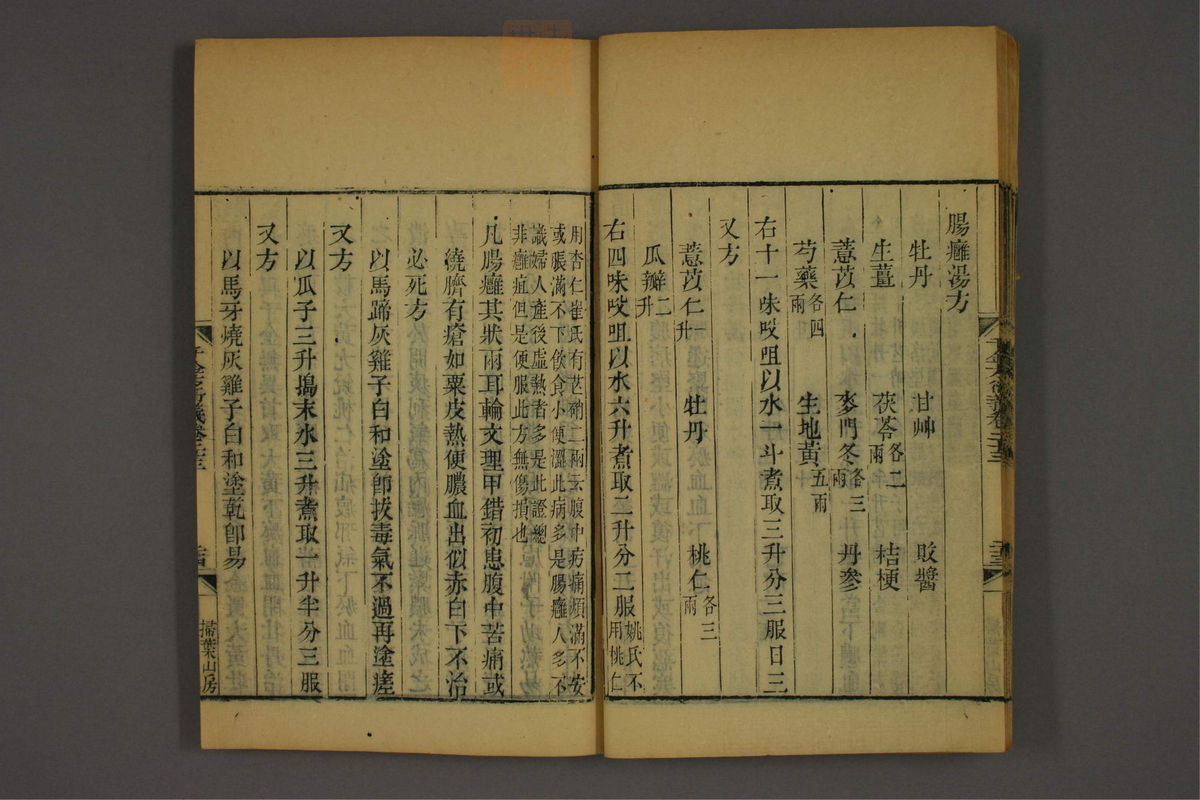 腸癰湯方
牡丹　甘艸　敗醬
生薑　茯苓各二兩　桔梗
薏苡仁　麥門冬各三兩　丹參
芍藥各四兩　生地黃五兩
右十一味㕮咀以水一斗煮取三升分三服日三
又方
薏苡仁一升　牡丹　桃仁各三兩
瓜瓣二升
右四味㕮咀以水六升煮取二升分二服姚氏不用桃仁
用杏仁崔氏有芒硝二兩云腹中㽲痛煩滿不安
或脹滿不下飲食小便澀此病多是腸癰人多不
識婦人產後虛熱者多是此證縱
非癰疽但是便服此方無傷損也
凡腸癰其狀兩耳輪文理甲錯初患腹中苦痛或
繞臍有瘡如粟皮熱便膿血出似赤白下不治
必死方
以馬蹄灰雞子白和塗卽拔毒氣不過再塗瘥
又方
以瓜子三升搗末水三升煮取一升半分三服
又方
以馬牙燒灰雞子白和塗乾卽易
掃葉山房